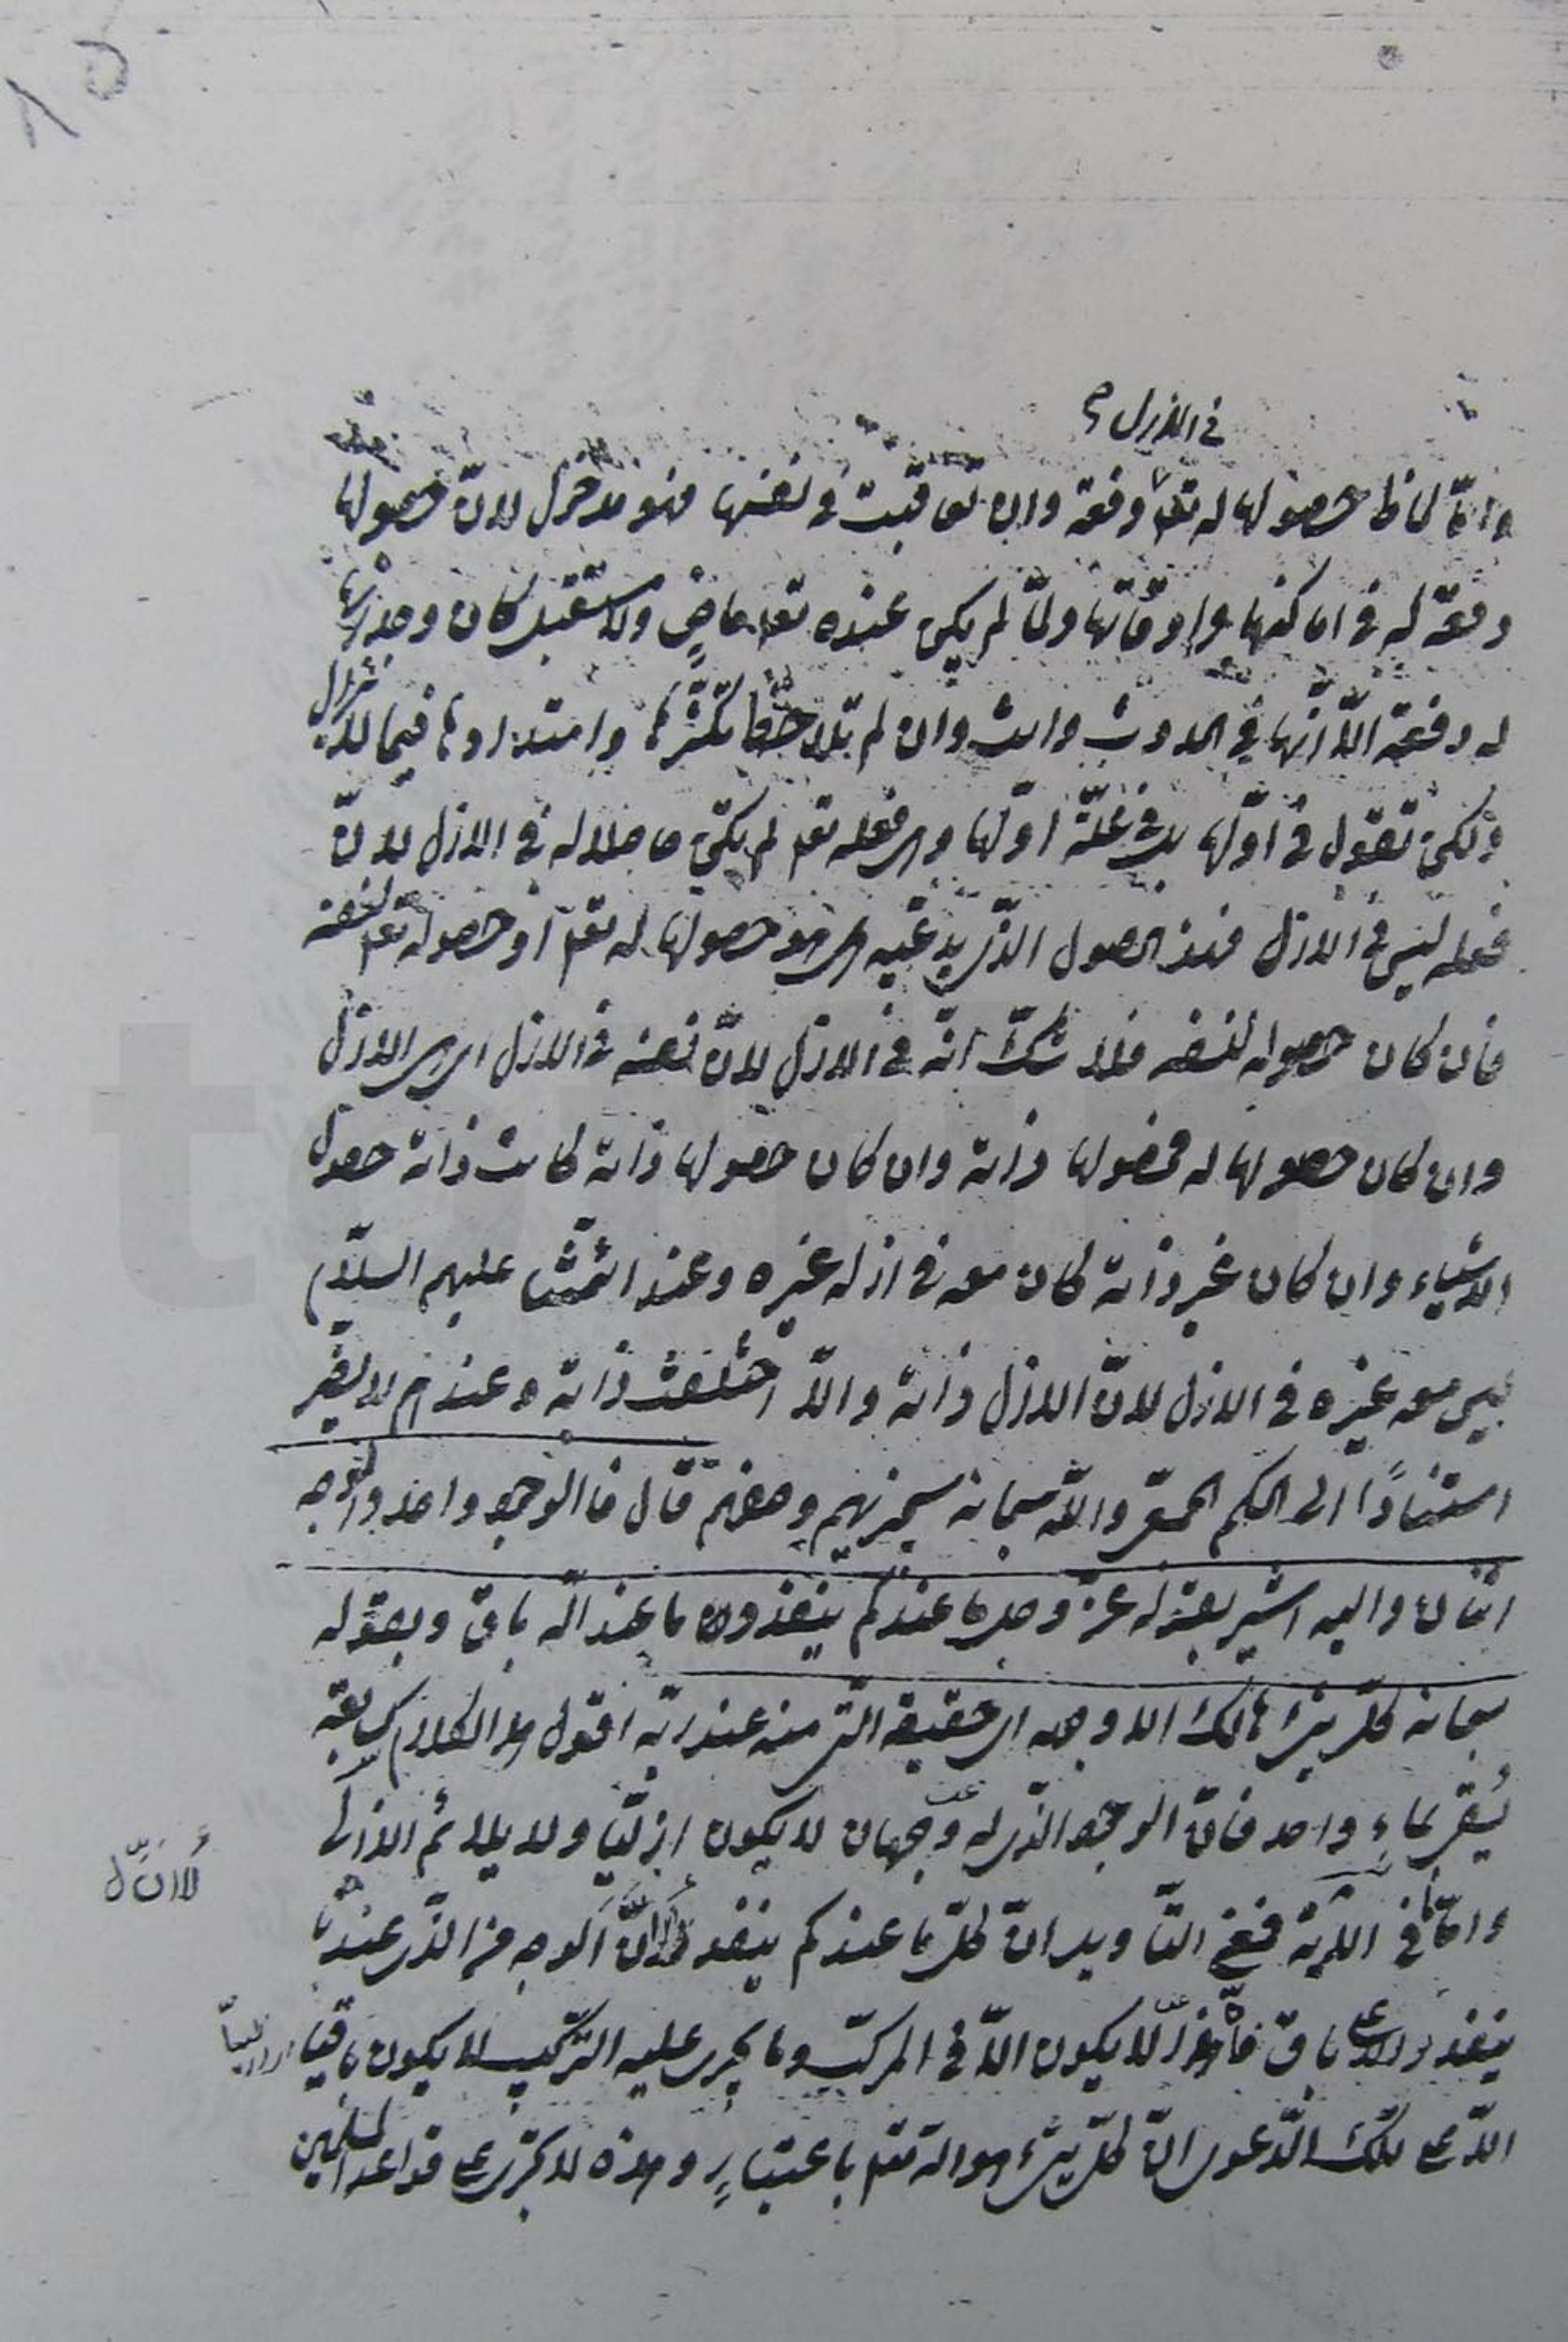 في الازل صح
وامّا لحاظ حصولها له تعا دفعة وان تعاقبت في نفسها فهو مدخول لانّ حصولها
دفعة له في اماكنها واوقاتها ولمّا لم يكن عنده تعا ماضٍ ولا مستقبل كان وجدانها
له دفعة الّا انّها في الحدوث وان لم تلاحظ تكثّرها وامتدادها فيما لا يزال
ولكن تقول في اوّلها بل في علّة اوّلها وهي فعله تعا لم يكن حاصلا له في الازل لانّ
فعله ليس في الازل فهذا الحصول الذي يدّعيه هل هو حصولها له تعا او حصوله تعا لنفسه
فان كان حصوله لنفسه فلا شكّ انّه في الازل لانّ نفسه في الازل اي هي الازل
وان كان حصولها له فحصولها ذاته وان كان حصولها ذاته كانت ذاته حصول
الاشياء وان كان غير ذاته كان معه في ازله غيره وعند ائمّتنا عليهم السلام
ليس معه غيره في الازل لانّ الازل ذاته والّا اختلفت ذاته وعندهم لا يضر
استنادًا الى الحكم والله سبحانه سيجزيهم وصفهم قال فالوجود واحد والوجه
اثنان واليه اشير بقوله عزّ وجل ما عندكم ينفد وما عند الله باق وبقوله
سبحانه كلّ شئ هالك الا وجهه اي حقيقته التي منه عند ربّه اقول هذا الكلام كسابقه
يُسقى بماءٍ واحد فانّ الوجود الذي له وجهان لا يكون ازليّا ولا يلائم الازل
وامّا ما في الآية فعلى التأويل انّ كلّ ما عندكم ينفد لانّ الوجه الذي عندنا
لانّ كل
ينفد والاعلى باق لا يكون الّا في المركّب وما يجري عليه التركيب لا يكون باقيا
الّا على تلك الدّعوى انّ كلّ شئ هو الله تعا باعتبارٍ وهذه لا تجري على قواعد المسلمين